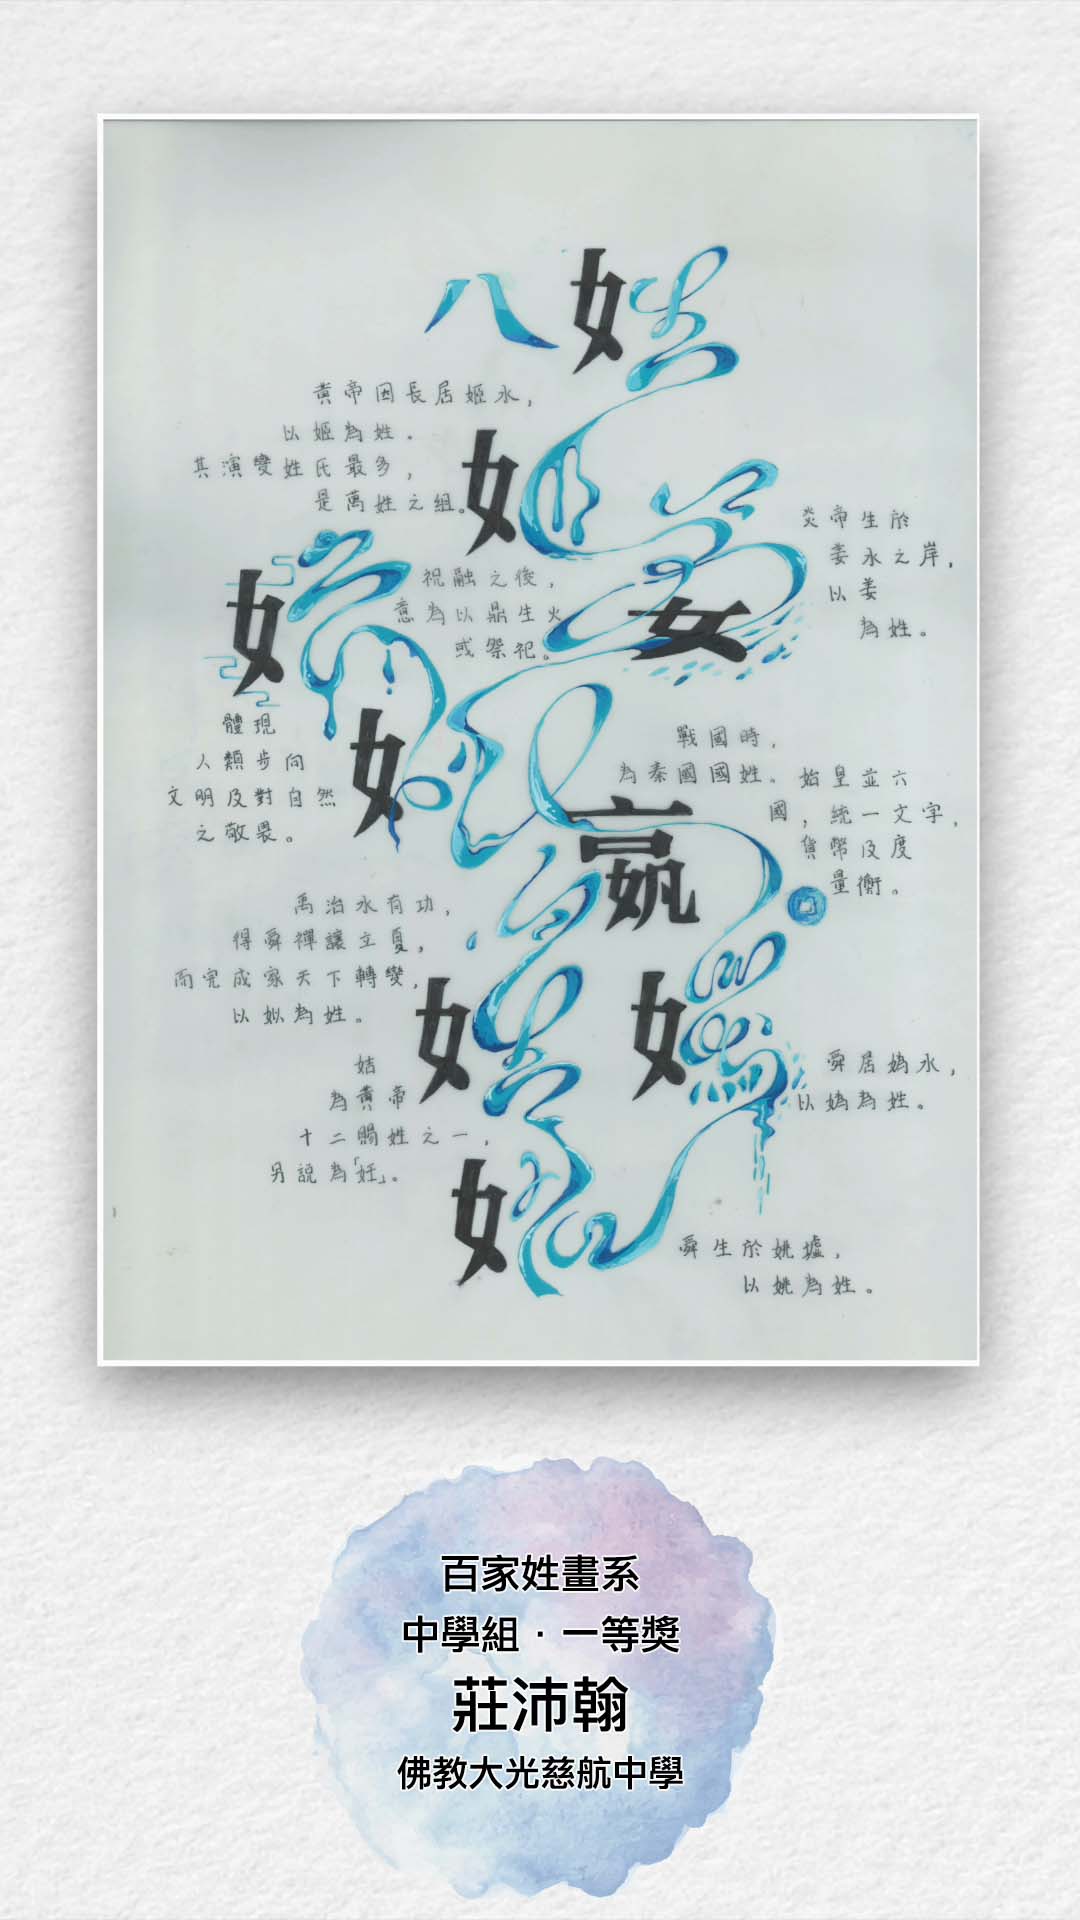 八姓
黃帝因長居姬水，
以姬為姓。
其演變姓氏最多，
是萬姓之組。
姬
姜
炎帝生於
姜水之岸，
以姜
為姓。
祝融之後，
意為以鼎生火
或祭祀。
體現
人類步向
文明及對自然
之敬畏。
姒
嬴
戰國時，
為秦國國姓。
始皇並六
國，統一文字，
貨幣及度
量衡。
禹治水有功，
得舜禪讓立夏，
而完成家天下轉變，
以姒為姓。
姞
媯
舜居媯水，
以媯為姓。
姞
為黃帝
十二賜姓之一，
另說為「妊」。
姚
舜生於姚墟，
以姚為姓。
百家姓畫系
中學組．一等獎
莊沛翰
佛教大光慈航中學